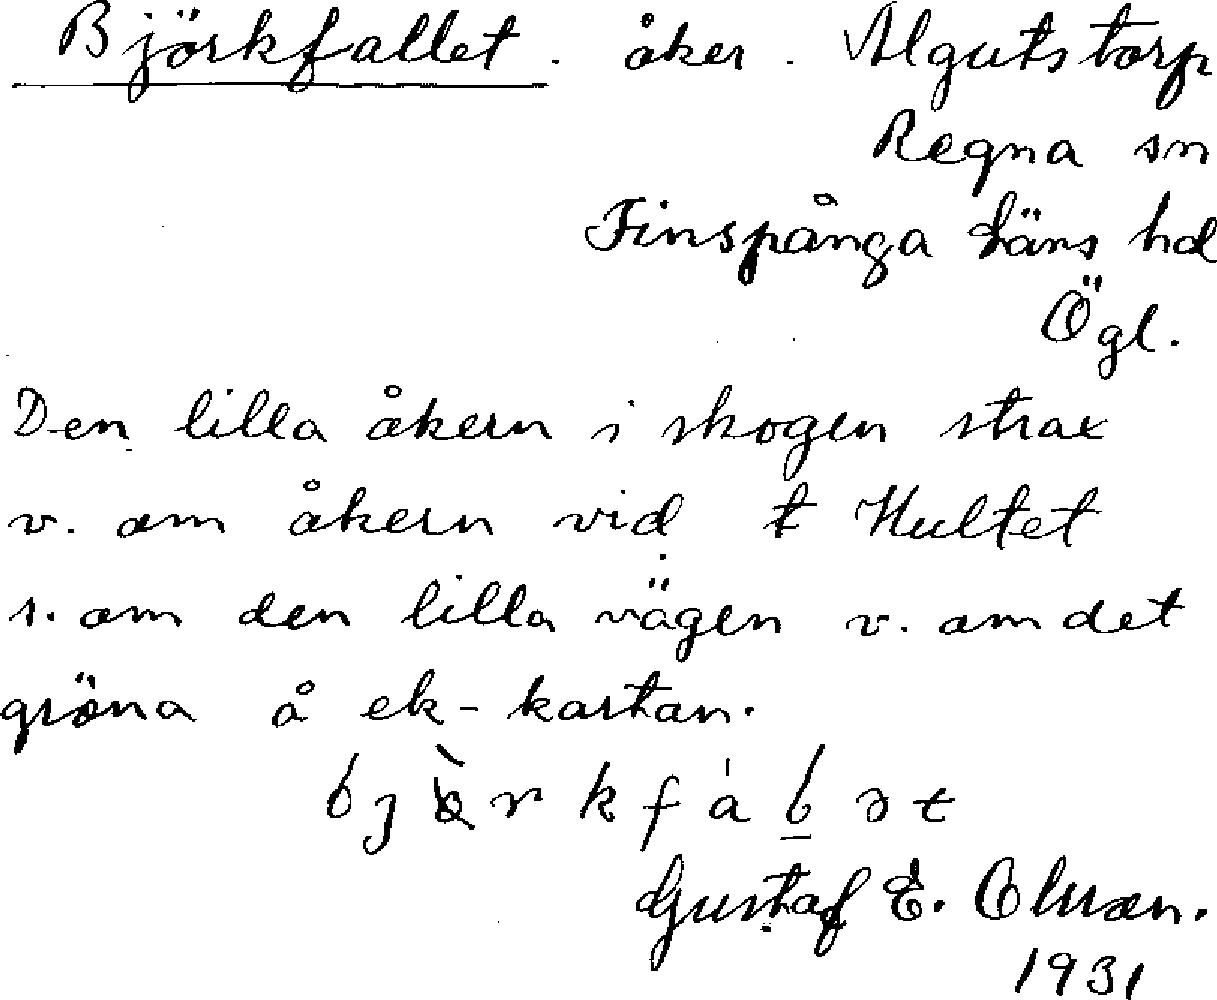 Björkfallet. åker. Algutstorp
Regna sn
Finspånga läns hd
Ögl.
Den lilla åkern i skogen strax
v. om åkern vid t Hultet
s. om den lilla vägen v. om det
gröna å ek-kartan.
Gustaf E.
1931